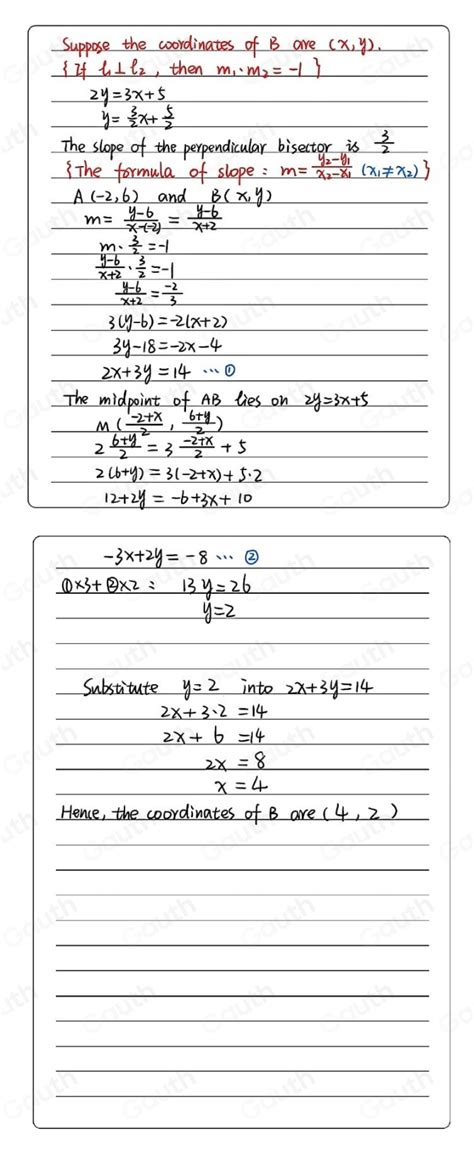 Suppose the coordinates of B are (x, y).
{ If l₁⊥l₂, then m₁·m₂ = -1 }
2y = 3x + 5
y = 3/2 x + 5/2
The slope of the perpendicular bisector is 3/2
{ The formula of slope : m = (y₂-y₁)/(x₂-x₁) (x₁≠x₂) }
A (-2, 6) and B( x, y)
m = (y-6)/(x-(-2)) = (y-6)/(x+2)
m · 3/2 = -1
(y-6)/(x+2) · 3/2 = -1
(y-6)/(x+2) = -2/3
3(y-6) = -2(x+2)
3y-18 = -2x-4
2x+3y = 14 ··· ①
The midpoint of AB lies on 2y=3x+5
M ( (-2+x)/2 , (6+y)/2 )
2 (6+y)/2 = 3 (-2+x)/2 + 5
2(6+y) = 3(-2+x) + 5·2
12+2y = -6+3x+10
-3x+2y = -8 ··· ②
①×3+②×2 : 13y = 26
y=2
Substitute y=2 into 2x+3y=14
2x+3·2 = 14
2x+6 = 14
2x = 8
x = 4
Hence, the coordinates of B are (4, 2)
Gauth